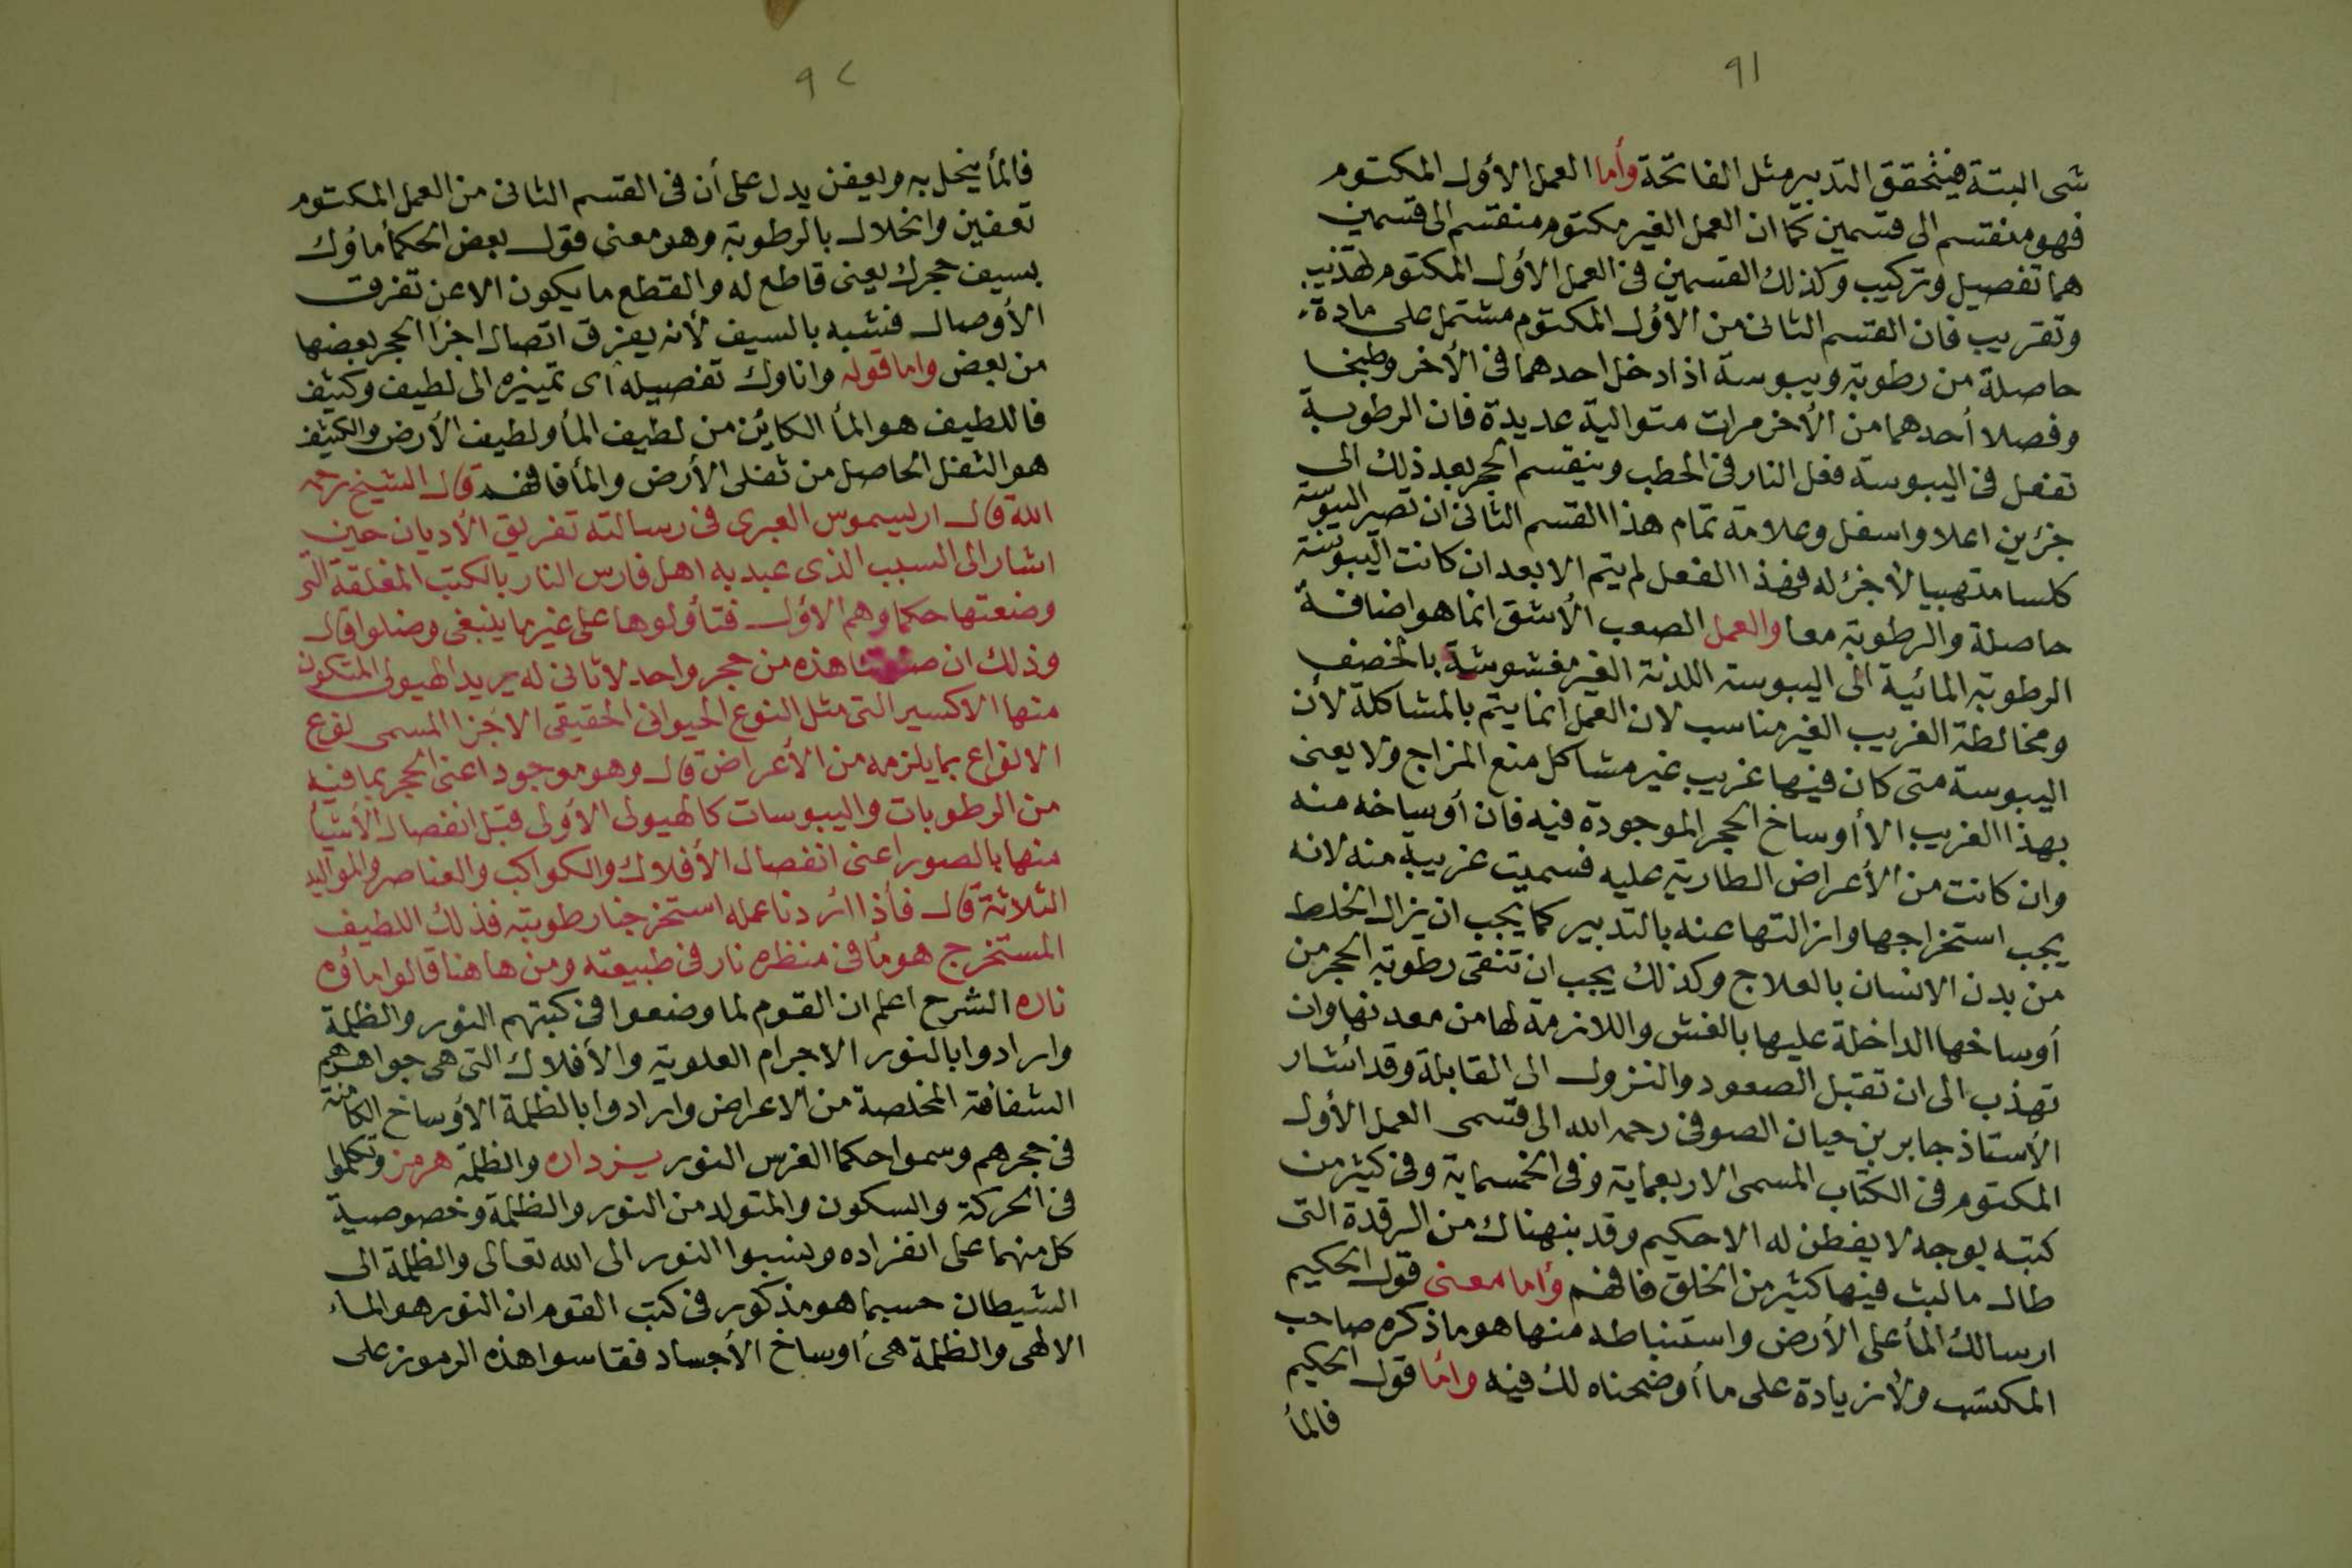 ٩١
شى البتة فيتحقق التدبير مثل الفاتحة وأما العمل الأول المكتوم
فهو منقسم الى قسمين كما ان العمل الغير مكتوم منقسم الى قسمين
هما تفصيل وتركيب وكذلك القسمين فى العمل الأول المكتوم تهذيب
وتقريب فان القسم الثانى من الأول المكتوم مشتمل على مادة
حاصلة من رطوبة ويبوسة اذا دخل احدهما فى الأخر وطبخا
وفصلا أحدهما من الأخر مرات متوالية عديدة فان الرطوبة
تفعل فى اليبوسة فعل النار فى الحطب وينقسم الحجر بعد ذلك الى
جزئين اعلا واسفل وعلامة تمام هذا القسم الثانى ان تصير اليبوسة
كلسا متهبيا لا جزء له فهذا الفعل لم يتم الا بعد ان كانت اليبوسة
حاصلة والرطوبة معا والعمل الصعب الأشق انما هو اضافة
الرطوبة المائية الى اليبوسة اللدنة الغير مغشوشة بالخصف
ومخالطة الغريب الغير مناسب لان العمل انما يتم بالمشاكلة لأن
اليبوسة متى كان فيها غريب غير مشاكل منع المزاج ولا يعنى
بهذا الغريب الا أوساخ الحجر الموجودة فيه فان أوساخه منه
وان كانت من الأعراض الطارية عليه فسميت غريبة منه لانه
يجب استخراجها وازالتها عنه بالتدبير كما يجب ان يزال الخلط
من بدن الانسان بالعلاج وكذلك يجب ان تنقى رطوبة الحجر من
أوساخها الداخلة عليها بالغش واللازمة لها من معدنها وان
تهذب الى ان تقبل الصعود والنزول الى القابلة وقد أشار
الأستاذ جابر بن حيان الصوفى رحمه الله الى قسمى العمل الأول
المكتوم فى الكتاب المسمى الاربعماية وفى الخمسماية وفى كثير من
كتبه بوجه لا يفطن له الا حكيم وقد بنهناك من الرقدة التى
طال ما لبث فيها كثير من الخلق فافهم وأما معنى قول الحكيم
ارسالك المأ على الأرض واستنباطه منها هو ما ذكره صاحب
المكتسب ولا زيادة على ما أوضحناه لك فيه واما قول الحكيم
فالمأ
٩٢
فالمأ ينحل به ويعفن يدل على أن فى القسم الثانى من العمل المكتوم
تعفين وانحلال بالرطوبة وهو معنى قول بعض الحكمأ ماؤك
بسيف حجرك يعنى قاطع له والقطع ما يكون الا عن تفرق
الأوصال فشبه بالسيف لأنه يفرق اتصال اجزا الحجر بعضها
من بعض واما قوله واناوك تفصيله أى تمييزه الى لطيف وكثيف
فاللطيف هو المأ الكاين من لطيف المأ ولطيف الأرض والكثيف
هو الثفل الحاصل من ثفلى الأرض والمأ فافهم قال الشيخ رحمه
الله قال ارليسموس العبرى فى رسالته تفريق الأديان حين
اشار الى السبب الذى عبد به اهل فارس النار بالكتب المغلقة التى
وضعتها حكماوهم الأول فتأولوها على غير ما ينبغى وضلوا قال
وذلك ان هذه من حجر واحد لا ثانى له يريد الهيولى المتكون
منها الاكسير التى مثل النوع الحيوانى الحقيقى الاجزا المسمى نوع
الانواع بما يلزمه من الأعراض قال وهو موجود اعنى الحجر بما فيه
من الرطوبات واليبوسات كالهيولى الأولى قبل انفصال الأشيأ
منها بالصور اعنى انفصال الأفلاك والكواكب والعناصر والمواليد
الثلاثة قال فأذا اردنا عمله استخرجنا رطوبته فذلك اللطيف
المستخرج هو مأ فى منظره نار فى طبيعته ومن هاهنا قالوا ماؤه
ناره الشرح اعلم ان القوم لما وضعوا فى كتبهم النور والظلمة
وارادوا بالنور الاجرام العلوية والأفلاك التى هى جواهرهم
الشفافة المخلصة من الاعراض وارادوا بالظلمة الأوساخ الكامنة
فى حجرهم وسموا حكما الفرس النور يزدان والظلمة هرمز وتكلموا
فى الحركة والسكون والمتولد من النور والظلمة وخصوصية
كل منهما على انفراده ونسبوا النور الى الله تعالى والظلمة الى
الشيطان حسبما هو مذكور فى كتب القوم ان النور هو الماء
الالهى والظلمة هى أوساخ الأجساد فقاسوا هذه الرموز على